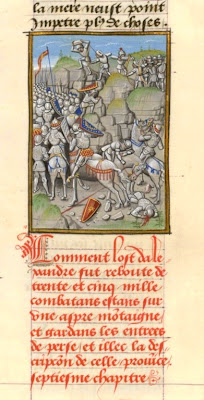 la mere neust point
Impetre pl' de choses.
Comment lost dale
xandre fut reboute de
trente et cinq mille
combatans estans sur
vne aspre mõtaigne et
gardans les entrees
de perse et illec la des
cripcõn de celle prouĩce
septiesme chapitre